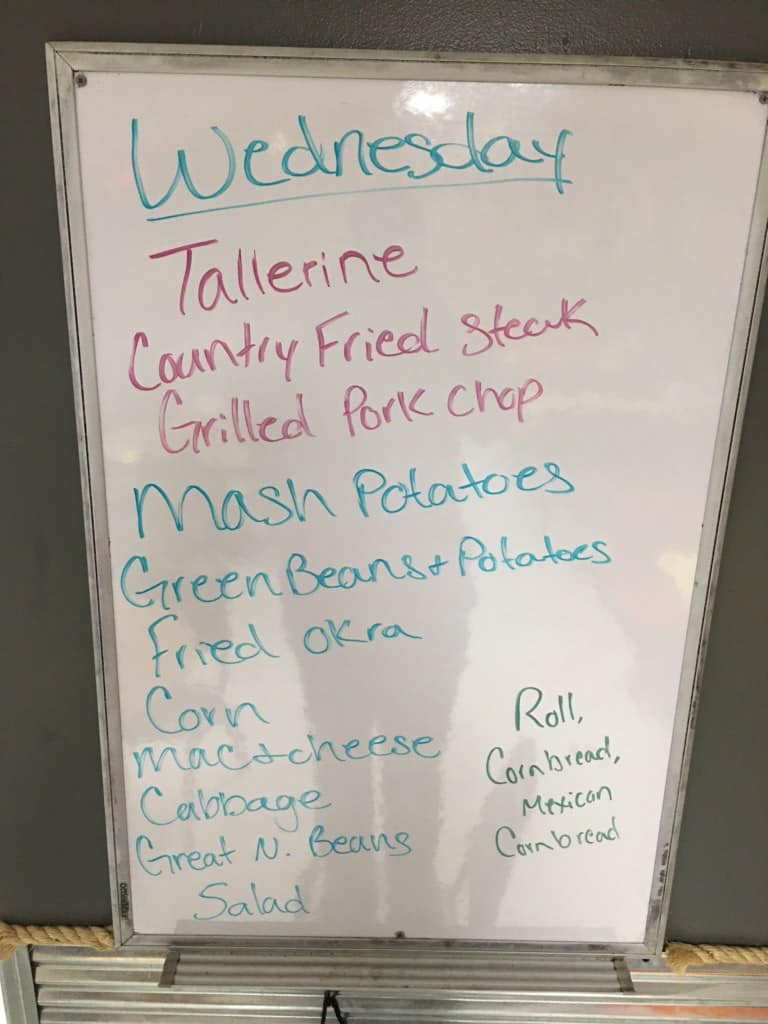 Wednesday
Tallerine
Country Fried Steak
Grilled Pork Chop
Mash Potatoes
Green Beans + Potatoes
Fried Okra
Corn
Mac + cheese
Cabbage
Great N. Beans
Salad
Roll,
Cornbread,
Mexican
Cornbread